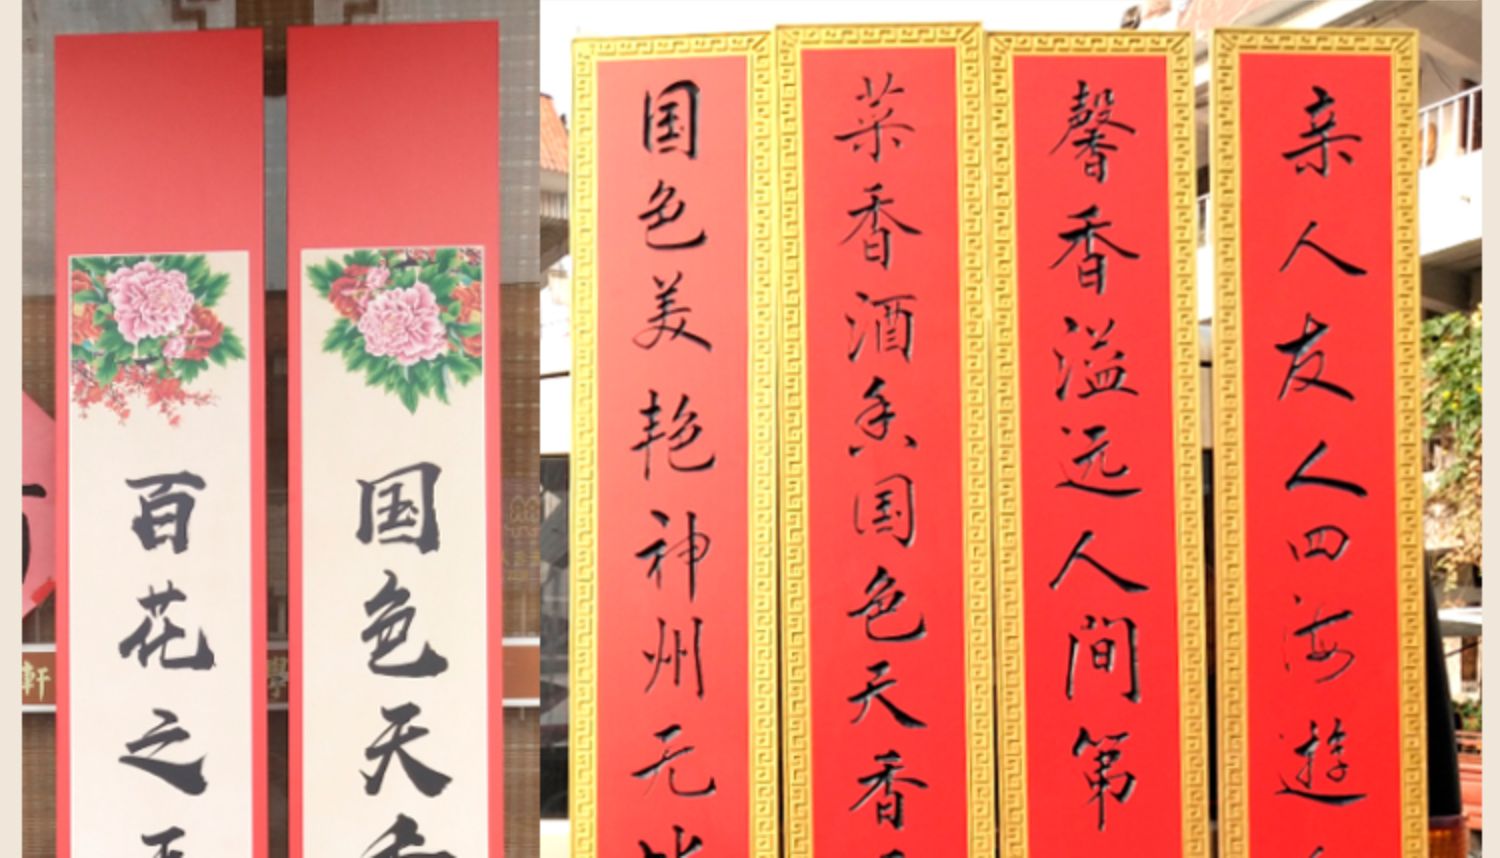 百花之王
国色天香
国色美艳神州无
菜香酒香国色天香
馨香溢远人间第
亲人友人四海遊
軒
學